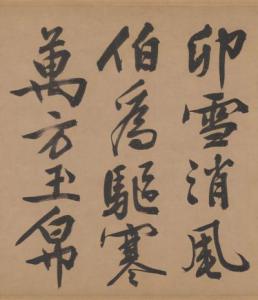 卯雪消風
伯為驅寒
萬方玉帛